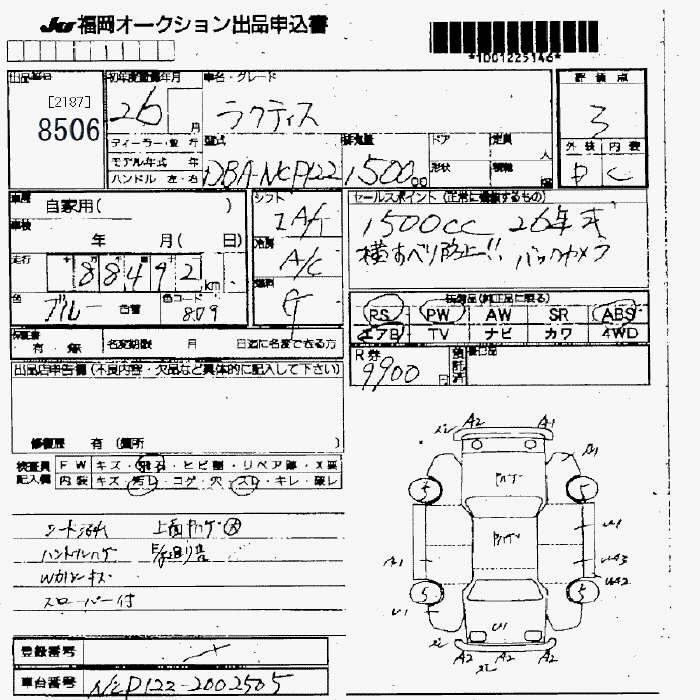 JU 福岡オークション出品申込書
*1001225146*
出品番号 初年度登録年月 車名・グレード 評価点
[2187]
8506
26 月 ラクティス 3
ディーラー・並行 型式 排気量 ドア 定員 人
モデル年式 年 形状 積載
ハンドル 左・右 DBA-NCP122 1500cc
外装 内装
C
車歴 自家用( ) シフト セールスポイント(正常に機能するもの)
車検 年 月( 日) IA/T 1500cc 26年式
横すべり防止!! バックカメラ
走行 88492 km 冷房 A/C
色 ブルー 色替 色コード 809 燃料 G
装備品(純正品に限る)
PS PW AW SR ABS
エアB TV ナビ カワ 4WD
保証書 有・無 名変期限 月 日迄に名変できる方
R券 9900 円 預託済
出品店申告欄(不良内容・欠品など具体的に記入して下さい)
修復歴 有(箇所
検査員 FW キズ・飛石・ヒビ割・リペア跡・X要
記入欄 内装 キズ・汚レ・コゲ・穴・スレ・キレ・破レ
シート汚れ
ハンドルハゲ
スローパー付
A2 A1
5 5
W1
W3
W2
5 5
A2 A2 A2
登録番号
車台番号 NCP122-2002505